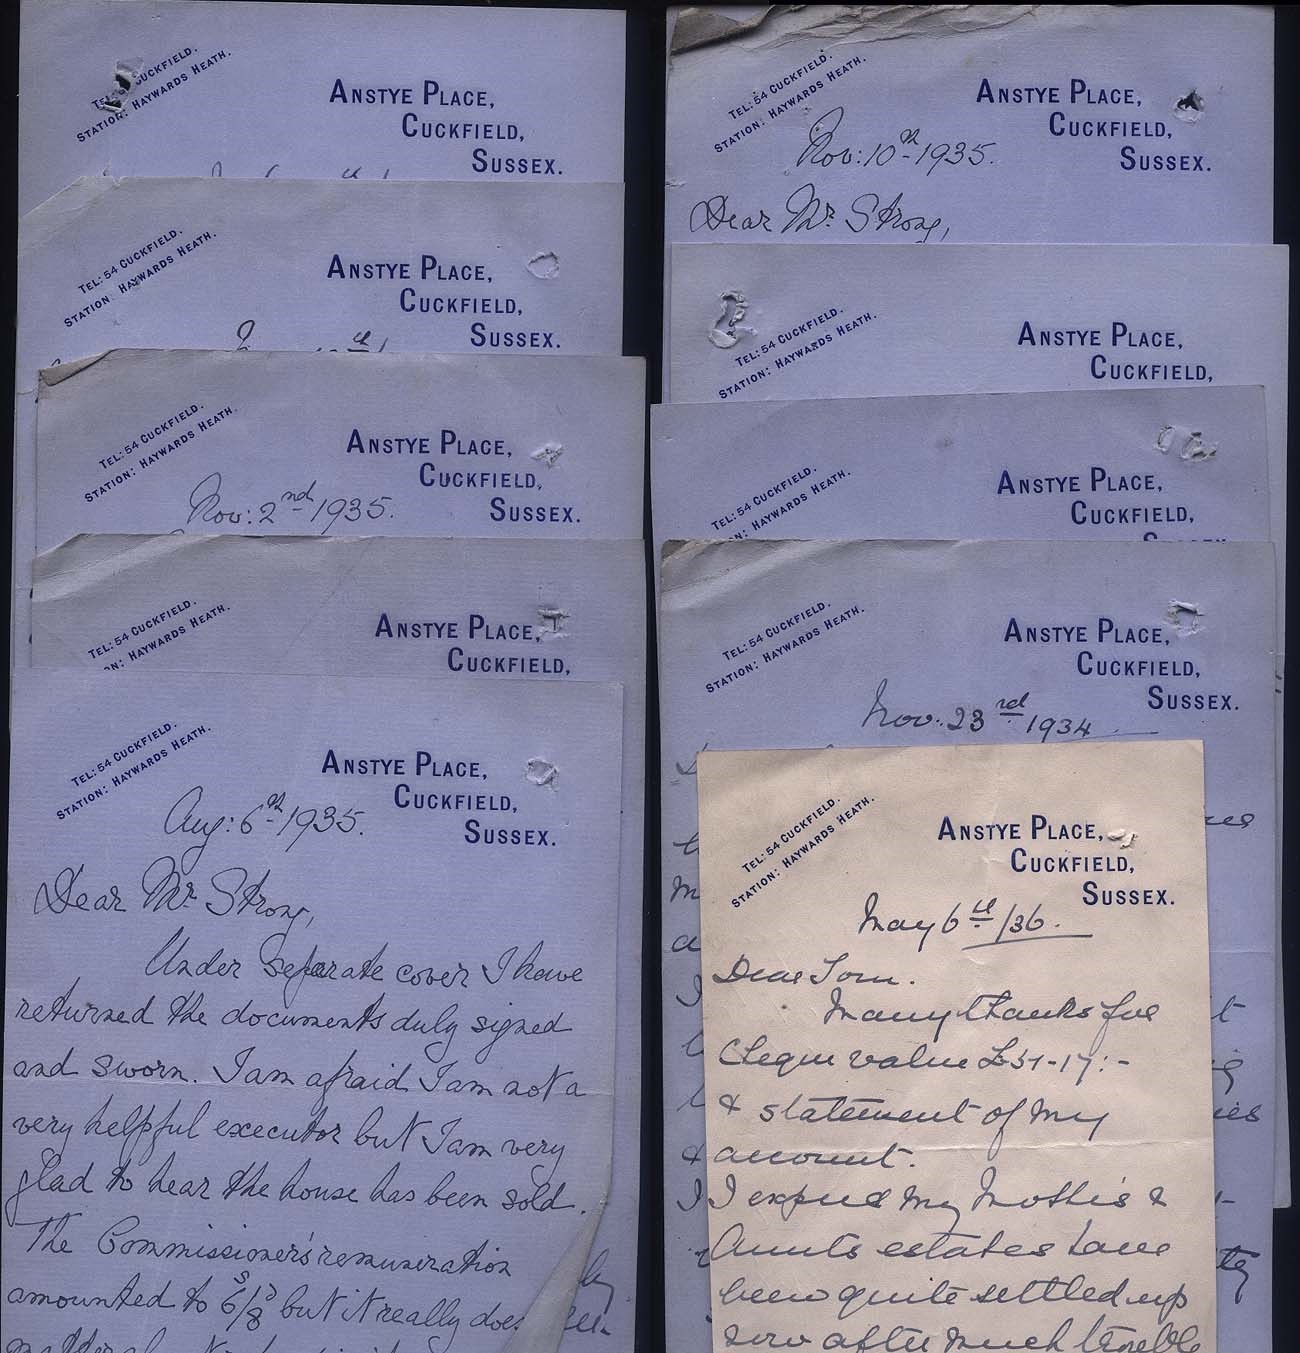 CUCKFIELD.
STATION: HAYWARDS HEATH.
ANSTYE PLACE,
CUCKFIELD,
SUSSEX.
TEL: 54 CUCKFIELD.
STATION: HAYWARDS HEATH.
ANSTYE PLACE,
CUCKFIELD,
SUSSEX.
TEL: 54 CUCKFIELD.
STATION: HAYWARDS HEATH.
ANSTYE PLACE,
CUCKFIELD,
SUSSEX.
Nov: 2nd 1935.
TEL: 54 CUCKFIELD.
HAYWARDS HEATH.
ANSTYE PLACE,
CUCKFIELD,
TEL: 54 CUCKFIELD.
STATION: HAYWARDS HEATH.
ANSTYE PLACE,
CUCKFIELD,
SUSSEX.
Aug: 6th 1935.
Dear Mr Strong,
Under separate cover I have
returned the documents duly signed
and sworn. I am afraid I am not a
very helpful executor but I am very
glad to hear the house has been sold.
The Commissioner's remuneration
amounted to but it really does
TEL: 54 CUCKFIELD.
STATION: HAYWARDS HEATH.
ANSTYE PLACE,
CUCKFIELD,
SUSSEX.
Nov: 10th 1935.
Dear Mr Strong,
TEL: 54 CUCKFIELD.
STATION: HAYWARDS HEATH.
ANSTYE PLACE,
CUCKFIELD,
TEL: 54 CUCKFIELD.
HAYWARDS HEATH.
ANSTYE PLACE,
CUCKFIELD,
TEL: 54 CUCKFIELD.
STATION: HAYWARDS HEATH.
ANSTYE PLACE,
CUCKFIELD,
SUSSEX.
Nov: 23rd 1934
TEL: 54 CUCKFIELD.
STATION: HAYWARDS HEATH.
ANSTYE PLACE,
CUCKFIELD,
SUSSEX.
May 6th /36.
Dear Tom.
Many thanks for
Cheque value £51-17:-
& statement of my
account.
I my Mothers &
Aunts estates have
been quite settled up
now after much trouble